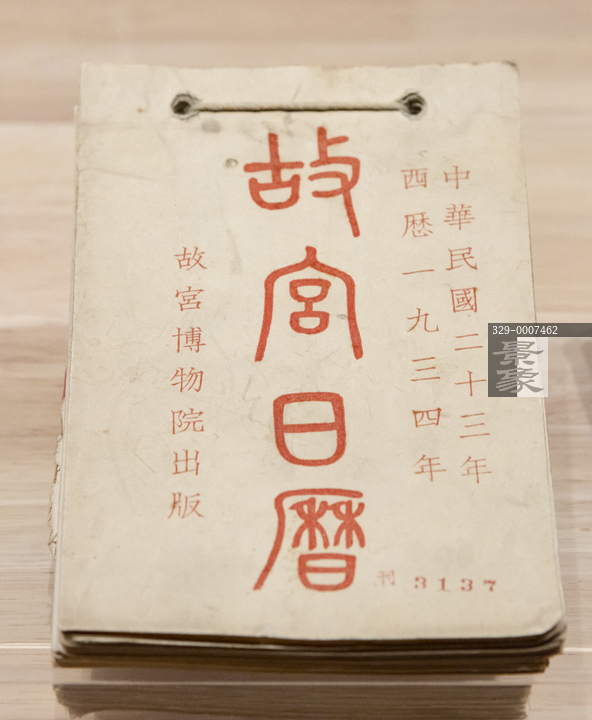 中華民國二十三年
西曆一九三四年
故宮日曆
故宮博物院出版
刊 3137
329-0007462
景象